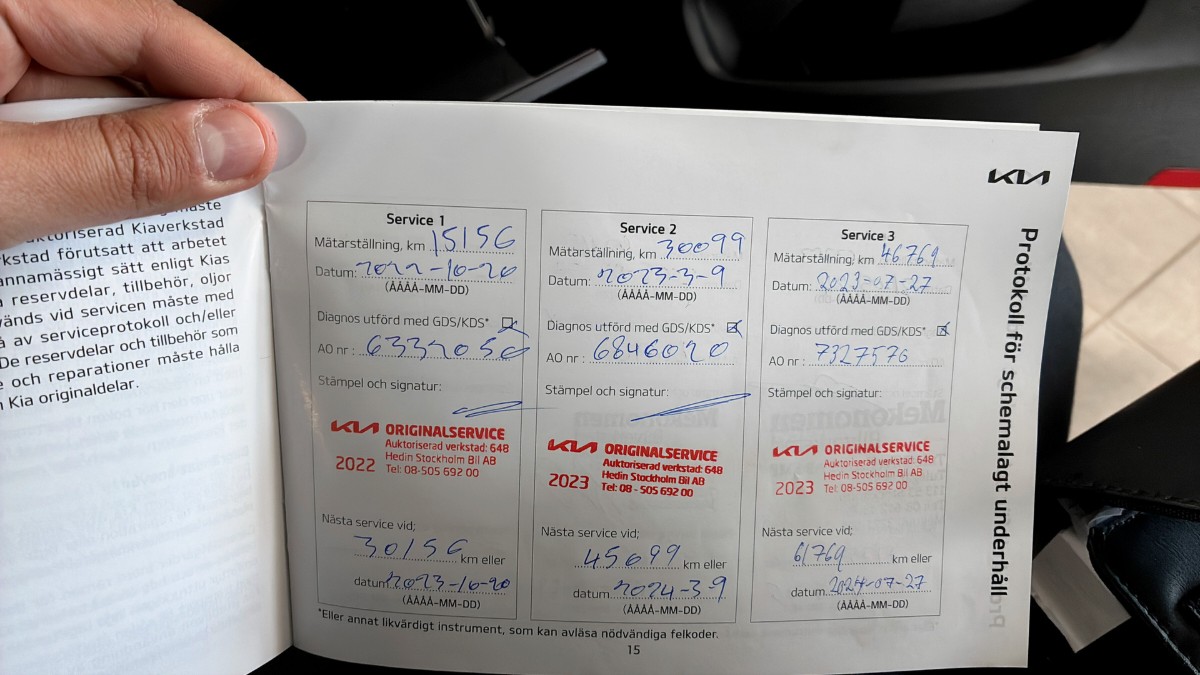 måste
auktoriserad Kiaverkstad
rkstad förutsatt att arbetet
annamässigt sätt enligt Kias
reservdelar, tillbehör, oljor
vänds vid servicen måste med
av serviceprotokoll och/eller
De reservdelar och tillbehör som
e och reparationer måste hålla
Kia originaldelar.
KIA
Protokoll för schemalagt underhåll
Service 1
Mätarställning, km 15156
Datum: 2022-10-20
(ÅÅÅÅ-MM-DD)
Diagnos utförd med GDS/KDS*
AO nr: 6332050
Stämpel och signatur:
KIA ORIGINALSERVICE
Auktoriserad verkstad: 648
Hedin Stockholm Bil AB
2022 Tel: 08-505 692 00
Nästa service vid;
30156 km eller
datum 2023-10-20
(ÅÅÅÅ-MM-DD)
Service 2
Mätarställning, km 30099
Datum: 2023-3-9
(ÅÅÅÅ-MM-DD)
Diagnos utförd med GDS/KDS*
AO nr: 6846020
Stämpel och signatur:
KIA ORIGINALSERVICE
Auktoriserad verkstad: 648
Hedin Stockholm Bil AB
2023 Tel: 08 - 505 692 00
Nästa service vid;
45099 km eller
datum 2024-3-9
(ÅÅÅÅ-MM-DD)
Service 3
Mätarställning, km 46769
Datum: 2023-07-27
(ÅÅÅÅ-MM-DD)
Diagnos utförd med GDS/KDS*
AO nr: 7327576
Stämpel och signatur:
KIA ORIGINALSERVICE
Auktoriserad verkstad: 648
Hedin Stockholm Bil AB
2023 Tel: 08-505 692 00
Nästa service vid;
61769 km eller
datum 2024-07-27
(ÅÅÅÅ-MM-DD)
*Eller annat likvärdigt instrument, som kan avläsa nödvändiga felkoder.
15